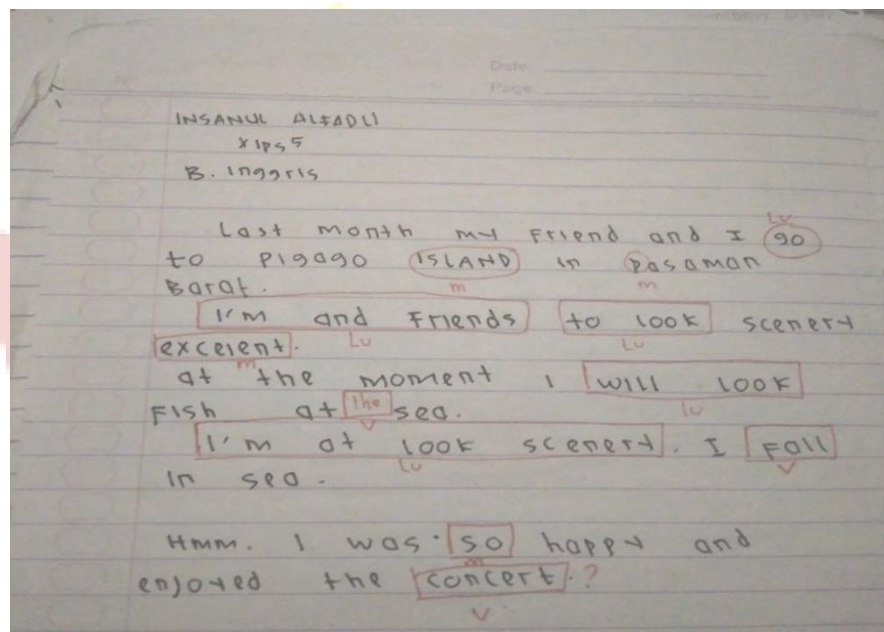 Date
Page
INSANUL ALFADLI
X IPS 5
B. Inggris
Lv
Last month my Friend and I go
to Pigogo ISLAND in Pasaman
m m
Barat.
I'm and Friends to look scenery
excelent. Lv Lv
m
at the moment I will look
Fish at the sea. lv
v
I'm at look scenery. I Fall
Lv v
in sea.
Hmm. I was so happy and
m
enjoyed the concert.?
v